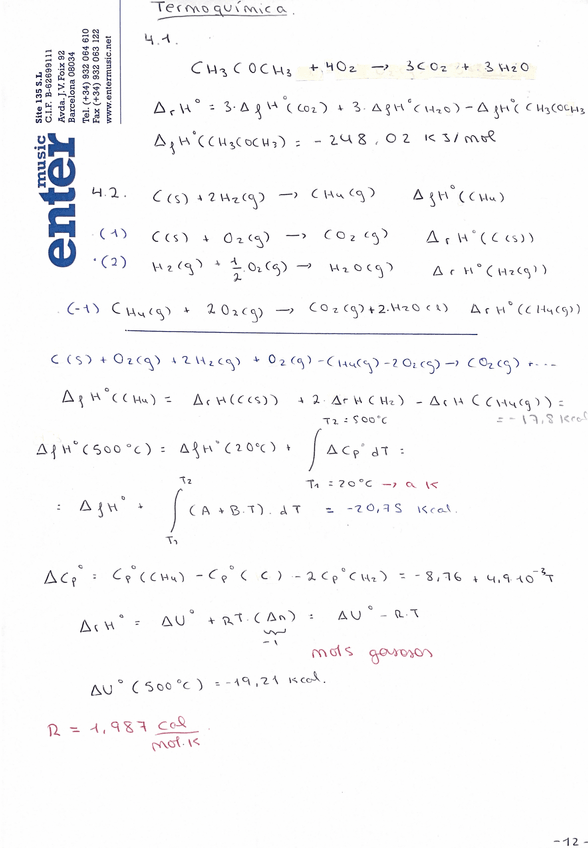 Termoquímica.
Site 135 S.L
C.I.F. B-62699111
Avda. J.V. Foix 92
Barcelona 08034
Tel. (+34) 932 064 610
Fax (+34) 932 063 122
www.entermusic.net
enter music
4.1.
CH3COCH3 + 4O2 → 3CO2 + 3H2O
ΔrH° = 3·ΔfH°(CO2) + 3·ΔfH°(H2O) - ΔfH°(CH3COCH3
ΔfH°(CH3COCH3) = -248,02 KJ/mol
4.2. C(s) + 2H2(g) → CH4(g) ΔfH°(CH4)
·(1) C(s) + O2(g) → CO2(g) ΔrH°(C(s))
·(2) H2(g) + 1/2 O2(g) → H2O(g) ΔrH°(H2(g))
·(-1) CH4(g) + 2O2(g) → CO2(g) + 2·H2O(l) ΔrH°(CH4(g))
C(s) + O2(g) + 2H2(g) + O2(g) - CH4(g) - 2O2(g) → CO2(g) + ...
ΔfH°(CH4) = ΔrH(C(s)) + 2·ΔrH(H2) - ΔrH(CH4(g)) =
= -17,8 Kcal
ΔfH°(500°C) = ΔfH°(20°C) + ∫ ΔCp° dT =
T2 = 500°C
T1 = 20°C → a K
= ΔfH° + ∫ (A + B·T)·dT = -20,75 Kcal.
T2
T1
ΔCp° = Cp°(CH4) - Cp°(C) - 2Cp°(H2) = -8,76 + 4,9·10⁻³T
ΔrH° = ΔU° + RT·(Δn) = ΔU° - R·T
-1
mols gasosos
ΔU°(500°C) = -19,21 Kcal.
R = 1,987 cal/mol·K
-12-